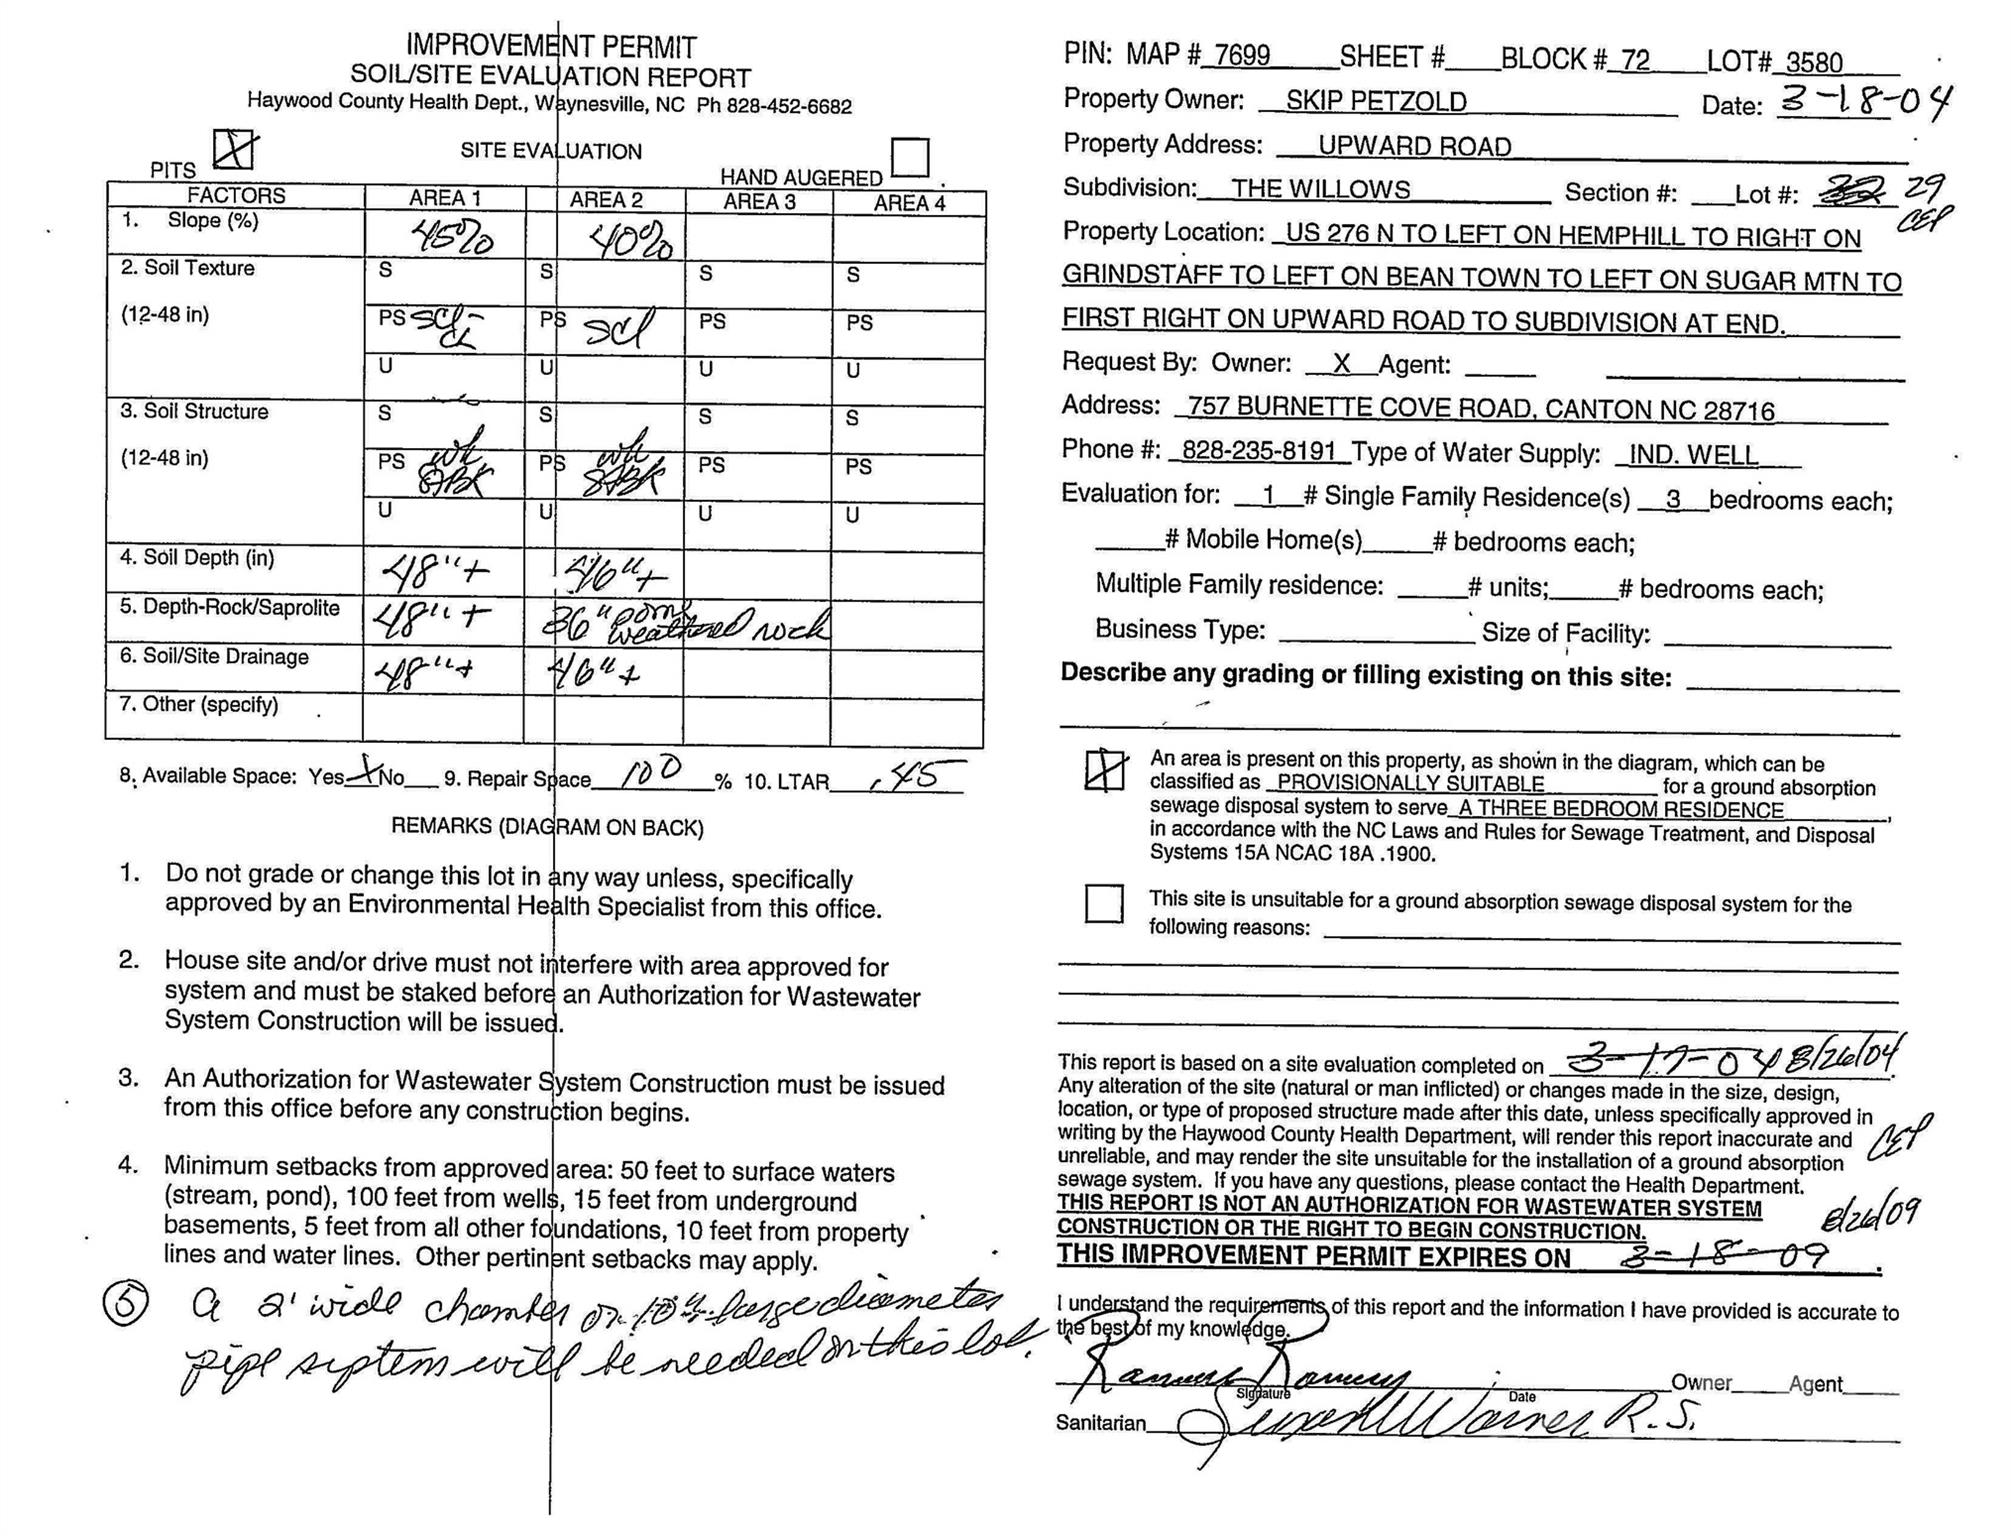 IMPROVEMENT PERMIT
SOIL/SITE EVALUATION REPORT
Haywood County Health Dept., Waynesville, NC Ph 828-452-6682
PITS X SITE EVALUATION HAND AUGERED
FACTORS AREA 1 AREA 2 AREA 3 AREA 4
1. Slope (%) 45% 40%
2. Soil Texture S S S S
(12-48 in) PS SCL- PS SCL PS PS
CL
U U U U
3. Soil Structure S S S S
(12-48 in) PS wk PS wk PS PS
SBK SBK
U U U U
4. Soil Depth (in) 48"+ 46"+
5. Depth-Rock/Saprolite 48"+ 36" some
weathered rock
6. Soil/Site Drainage 48"+ 46"+
7. Other (specify)
8. Available Space: Yes X No___ 9. Repair Space 100 % 10. LTAR .45
REMARKS (DIAGRAM ON BACK)
1. Do not grade or change this lot in any way unless, specifically
approved by an Environmental Health Specialist from this office.
2. House site and/or drive must not interfere with area approved for
system and must be staked before an Authorization for Wastewater
System Construction will be issued.
3. An Authorization for Wastewater System Construction must be issued
from this office before any construction begins.
4. Minimum setbacks from approved area: 50 feet to surface waters
(stream, pond), 100 feet from wells, 15 feet from underground
basements, 5 feet from all other foundations, 10 feet from property
lines and water lines. Other pertinent setbacks may apply.
5 A 2' wide chamber or 10" large diameter
pipe system will be needed on this lot.
PIN: MAP # 7699 SHEET # ___ BLOCK # 72 LOT# 3580
Property Owner: SKIP PETZOLD Date: 3-18-04
Property Address: UPWARD ROAD
Subdivision: THE WILLOWS Section #: ___ Lot #: 29
CEP
Property Location: US 276 N TO LEFT ON HEMPHILL TO RIGHT ON
GRINDSTAFF TO LEFT ON BEAN TOWN TO LEFT ON SUGAR MTN TO
FIRST RIGHT ON UPWARD ROAD TO SUBDIVISION AT END.
Request By: Owner: X Agent: _____
Address: 757 BURNETTE COVE ROAD, CANTON NC 28716
Phone #: 828-235-8191 Type of Water Supply: IND. WELL
Evaluation for: 1 # Single Family Residence(s) 3 bedrooms each;
_____# Mobile Home(s)_____# bedrooms each;
Multiple Family residence: _____# units;_____# bedrooms each;
Business Type: __________ Size of Facility: __________
Describe any grading or filling existing on this site: __________
X An area is present on this property, as shown in the diagram, which can be
classified as PROVISIONALLY SUITABLE for a ground absorption
sewage disposal system to serve A THREE BEDROOM RESIDENCE,
in accordance with the NC Laws and Rules for Sewage Treatment, and Disposal
Systems 15A NCAC 18A .1900.
This site is unsuitable for a ground absorption sewage disposal system for the
following reasons: __________
This report is based on a site evaluation completed on 3-17-04 8/26/04.
Any alteration of the site (natural or man inflicted) or changes made in the size, design,
location, or type of proposed structure made after this date, unless specifically approved in
writing by the Haywood County Health Department, will render this report inaccurate and
CEP
unreliable, and may render the site unsuitable for the installation of a ground absorption
sewage system. If you have any questions, please contact the Health Department.
THIS REPORT IS NOT AN AUTHORIZATION FOR WASTEWATER SYSTEM
CONSTRUCTION OR THE RIGHT TO BEGIN CONSTRUCTION.
8/26/09
THIS IMPROVEMENT PERMIT EXPIRES ON 3-18-09.
I understand the requirements of this report and the information I have provided is accurate to
the best of my knowledge.
Owner____Agent____
Signature Date
Sanitarian Warner R.S.